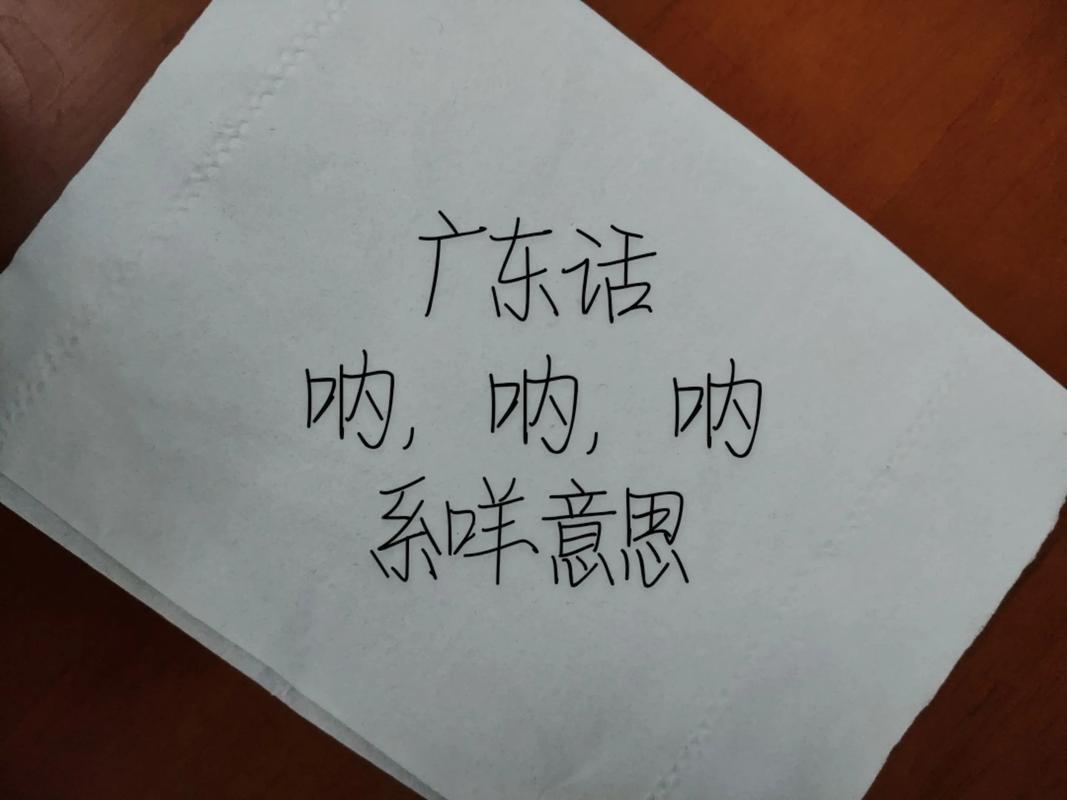 广东话
呐,呐,呐
系咩意思